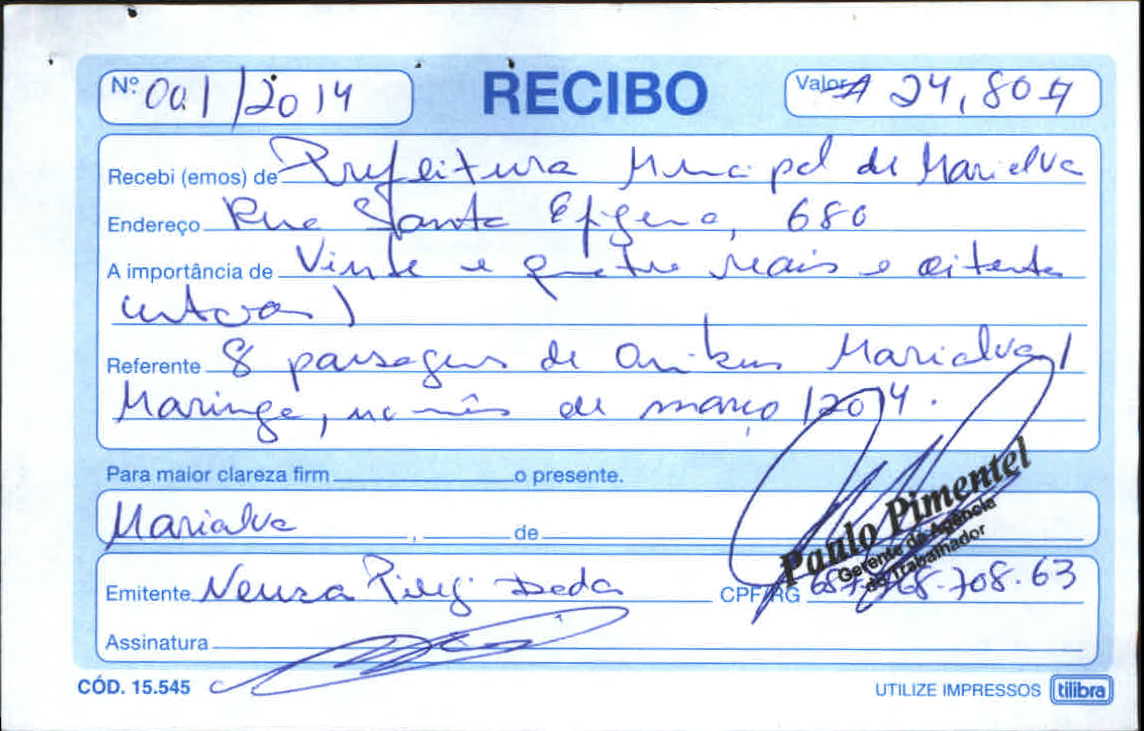 Nº 001/2014 RECIBO Valor # 24,80 #
Recebi (emos) de Prefeitura Municipal de Marialva
Endereço Rua Santa Efigena, 680
A importância de Vinte e quatro reais e oitenta
centavos)
Referente 8 passagens de onibus Marialva/
Maringa, no mês de março/2014.
Para maior clareza firm o presente.
Marialva , de
Paulo Pimentel
Gerente da Agência
do Trabalhador
Emitente Neuza Deda CPF/RG 708.63
Assinatura
CÓD. 15.545 UTILIZE IMPRESSOS tilibra